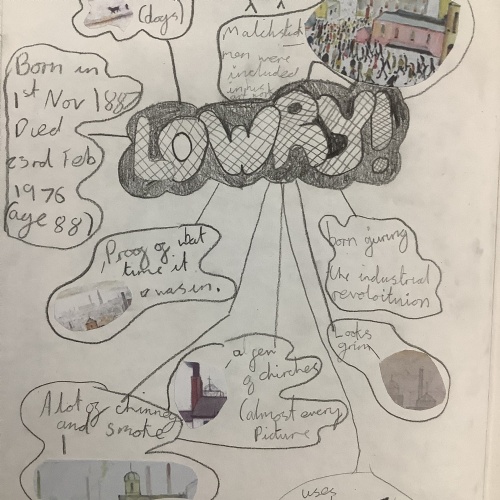 (dogs)
Matchstick
men were
included
in his
Born in
1st Nov 188
Died
23rd Feb
1976
(age 88)
LOWRY!
Proof of what
time it
was in.
born during
the industrial
revoloitunion
Looks
grim
a few
of chirches
(almost every
Picture
A lot of chimney
and smoke
uses